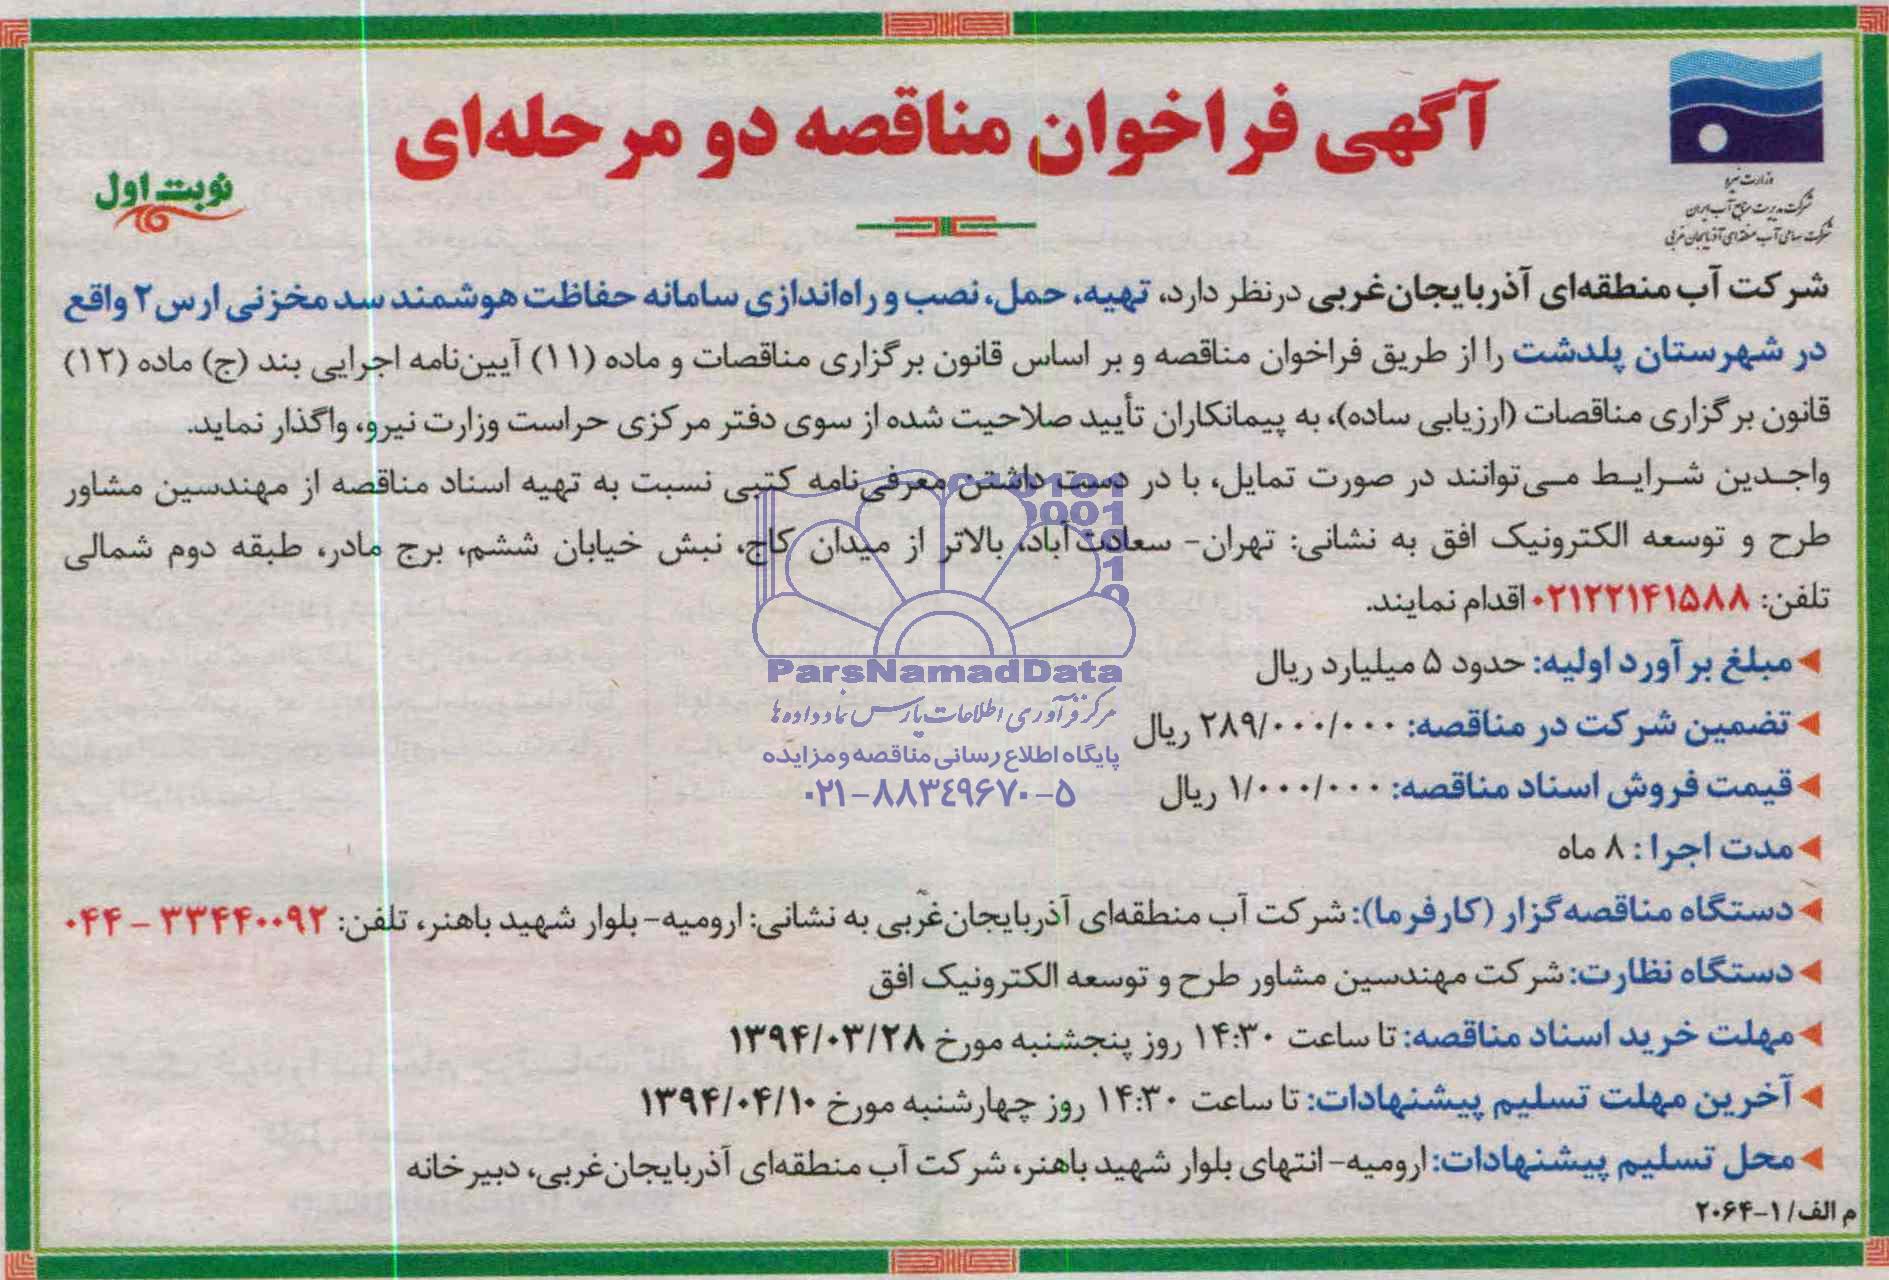 وزارت نیرو
شرکت مدیریت منابع آب ایران
شرکت سهامی آب منطقه‌ای آذربایجان غربی
آگهی فراخوان مناقصه دو مرحله‌ای
نوبت اول
شرکت آب منطقه‌ای آذربایجان‌غربی درنظر دارد، تهیه، حمل، نصب و راه‌اندازی سامانه حفاظت هوشمند سد مخزنی ارس۲ واقع
در شهرستان پلدشت را از طریق فراخوان مناقصه و بر اساس قانون برگزاری مناقصات و ماده (۱۱) آیین‌نامه اجرایی بند (ج) ماده (۱۲)
قانون برگزاری مناقصات (ارزیابی ساده)، به پیمانکاران تأیید صلاحیت شده از سوی دفتر مرکزی حراست وزارت نیرو، واگذار نماید.
واجدین شرایط می‌توانند در صورت تمایل، با در دست داشتن معرفی‌نامه کتبی نسبت به تهیه اسناد مناقصه از مهندسین مشاور
طرح و توسعه الکترونیک افق به نشانی: تهران- سعادت‌آباد، بالاتر از میدان کاج، نبش خیابان ششم، برج مادر، طبقه دوم شمالی
تلفن: ۰۲۱۲۲۱۴۱۵۸۸ اقدام نمایند.
مبلغ برآورد اولیه: حدود ۵ میلیارد ریال
تضمین شرکت در مناقصه: ۲۸۹/۰۰۰/۰۰۰ ریال
قیمت فروش اسناد مناقصه: ۱/۰۰۰/۰۰۰ ریال
مدت اجرا: ۸ ماه
دستگاه مناقصه‌گزار (کارفرما): شرکت آب منطقه‌ای آذربایجان‌غربی به نشانی: ارومیه- بلوار شهید باهنر، تلفن: ۳۳۴۴۰۰۹۲ - ۰۴۴
دستگاه نظارت: شرکت مهندسین مشاور طرح و توسعه الکترونیک افق
مهلت خرید اسناد مناقصه: تا ساعت ۱۴:۳۰ روز پنجشنبه مورخ ۱۳۹۴/۰۳/۲۸
آخرین مهلت تسلیم پیشنهادات: تا ساعت ۱۴:۳۰ روز چهارشنبه مورخ ۱۳۹۴/۰۴/۱۰
محل تسلیم پیشنهادات: ارومیه- انتهای بلوار شهید باهنر، شرکت آب منطقه‌ای آذربایجان‌غربی، دبیرخانه
م الف/۱-۲۰۶۴
ParsNamadData
مرکز فرآوری اطلاعات پارس نماد داده ها
پایگاه اطلاع رسانی مناقصه و مزایده
۰۲۱-۸۸۳۴۹۶۷۰-۵